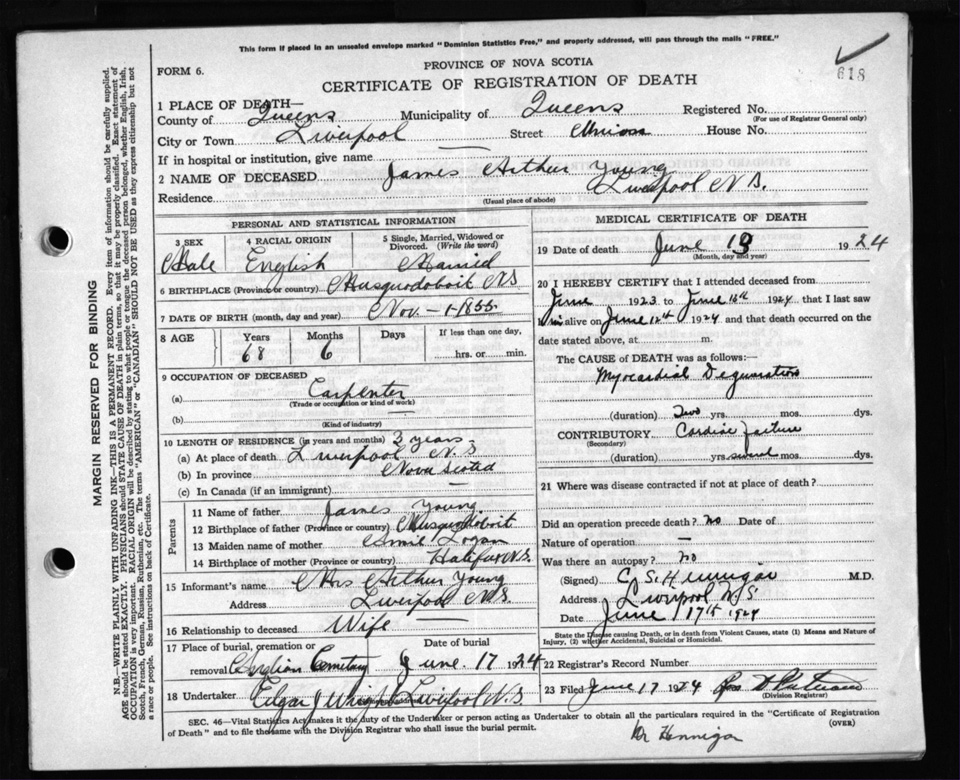 This form if placed in an unsealed envelope marked "Dominion Statistics Free," and property addressed, will pass through the mails "FREE."
618
PROVINCE OF NOVA SCOTIA
FORM 6.
CERTIFICATE OF REGISTRATION OF DEATH
MARGIN RESERVED FOR BINDING
N.B.—WRITE PLAINLY WITH UNFADING INK—THIS IS A PERMANENT RECORD. Every item of information should be carefully supplied.
AGE should be stated EXACTLY. PHYSICIANS should STATE CAUSE OF DEATH in plain terms, so that it may be properly classified. Exact statement of
OCCUPATION is very important. RACIAL ORIGIN will be described by stating to what people or tongue the deceased person belonged, whether English, Irish,
Scotch, French, German, Russian, Ruthenian, etc. The terms "AMERICAN" or "CANADIAN" SHOULD NOT BE USED as they express citizenship but not
a race or people. See instructions on back of Certificate.
1 PLACE OF DEATH—
County of Queens Municipality of Queens Registered No.
(For use of Registrar General only)
City or Town Liverpool Street Union House No.
If in hospital or institution, give name —
2 NAME OF DECEASED James Arthur Young
Residence Liverpool N.S.
(Usual place of abode)
PERSONAL AND STATISTICAL INFORMATION
3 SEX 4 RACIAL ORIGIN 5 Single, Married, Widowed or Divorced. (Write the word)
Male English Married
6 BIRTHPLACE (Province or country) Musquodoboit N.S.
7 DATE OF BIRTH (month, day and year) Nov. — 1-1855
8 AGE Years Months Days If less than one day,
68 6 hrs. or min.
9 OCCUPATION OF DECEASED
(a) Carpenter
(Trade or occupation or kind of work)
(b) —
(Kind of industry)
10 LENGTH OF RESIDENCE (in years and months) 3 years
(a) At place of death Liverpool N.S
(b) In province Nova Scotia
(c) In Canada (if an immigrant) —
Parents
11 Name of father James Young
12 Birthplace of father (Province or country) Musquodoboit
13 Maiden name of mother Logan
14 Birthplace of mother (Province or country) Halifax N.S.
15 Informant's name Mrs Arthur Young
Address Liverpool N.S.
16 Relationship to deceased Wife
17 Place of burial, cremation or Date of burial
removal Cemetary June 17 1924
18 Undertaker Edgar J Liverpool N.S.
MEDICAL CERTIFICATE OF DEATH
19 Date of death June 13 1924
(Month, day and year)
20 I HEREBY CERTIFY that I attended deceased from
June 1923 to June 1924 that I last saw
him alive on June 12th 1924 and that death occurred on the
date stated above, at m.
The CAUSE of DEATH was as follows:—
Myocardial Degeneration
(duration) Two yrs. mos. dys.
CONTRIBUTORY Cardiac Failure
(Secondary)
(duration) yrs. several mos. dys.
21 Where was disease contracted if not at place of death?
Did an operation precede death? no Date of
Nature of operation —
Was there an autopsy? no
(Signed) C. S. Hennigar M.D.
Address Liverpool N.S.
Date June 17th 1924
State the Disease causing Death, or in death from Violent Causes, state (1) Means and Nature of
Injury, (2) whether Accidental, Suicidal or Homicidal.
22 Registrar's Record Number
23 Filed June 17 1924
(Division Registrar)
SEC. 46—Vital Statistics Act makes it the duty of the Undertaker or person acting as Undertaker to obtain all the particulars required in the "Certificate of Registration
of Death" and to file the same with the Division Registrar who shall issue the burial permit.
(OVER)
Dr Hennigar